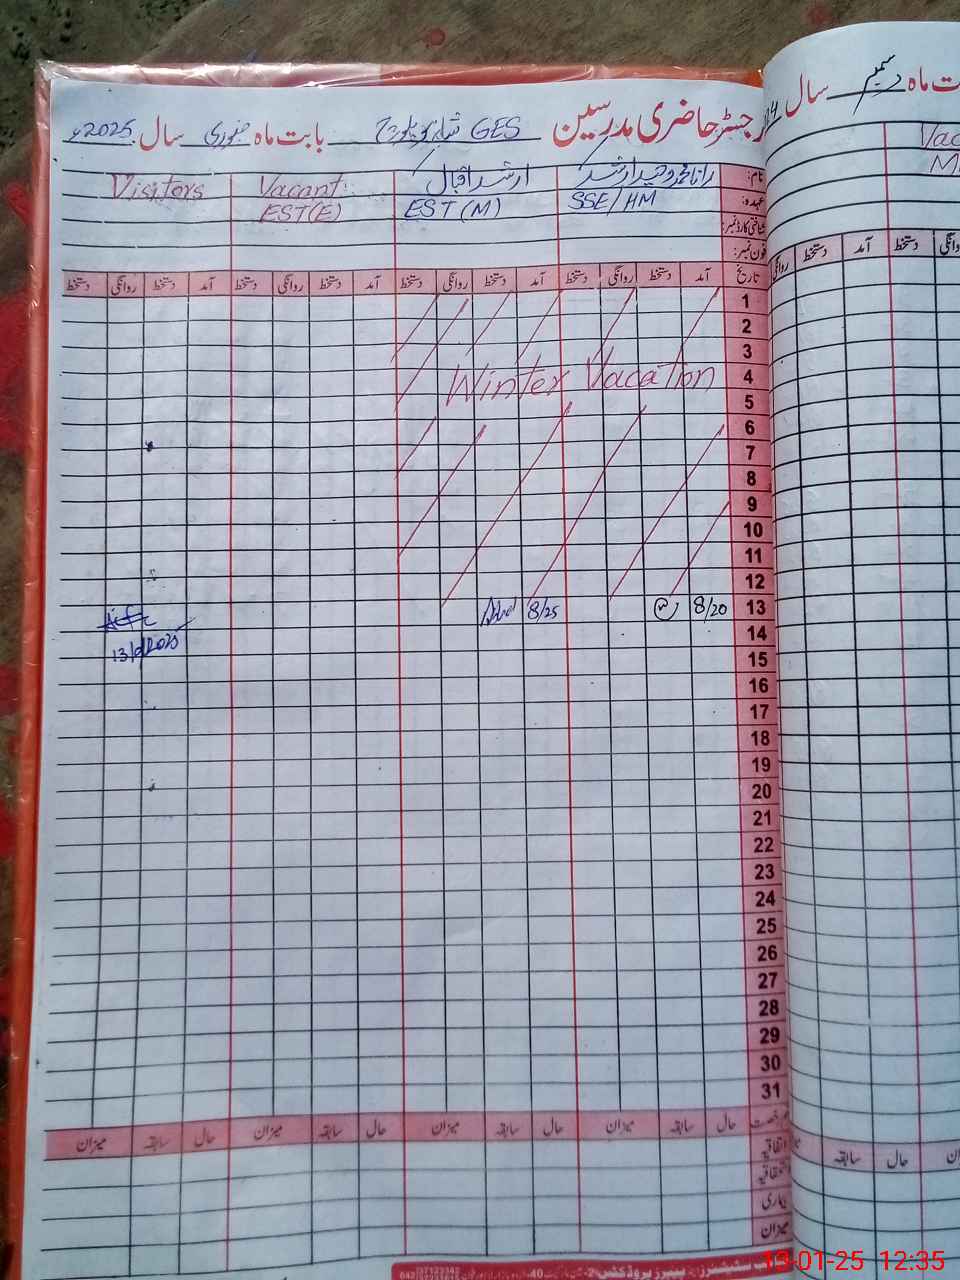 رجسٹر حاضری مدرسین GES بابت ماہ جنوری سال 2025ء
نام: ارشد اقبال Vacant Visitors
عہدہ: SSE/HM EST (M) EST(E)
شناختی کارڈ نمبر:
فون نمبر:
تاریخ آمد دستخط روانگی دستخط آمد دستخط روانگی دستخط آمد دستخط روانگی دستخط آمد دستخط روانگی دستخط
1
2
3
4 Winter Vacation
5
6
7
8
9
10
11
12
13 8/20 8/25
14
15
16
17
18
19
20
21
22
23
24
25
26
27
28
29
30
31
حال سابقہ میزان حال سابقہ میزان حال سابقہ میزان حال سابقہ میزان
بیماری
میزان
ماہ دسمبر سال
Vac
آمد دستخط روانگی دستخط
حال سابقہ
19-01-25 12:35